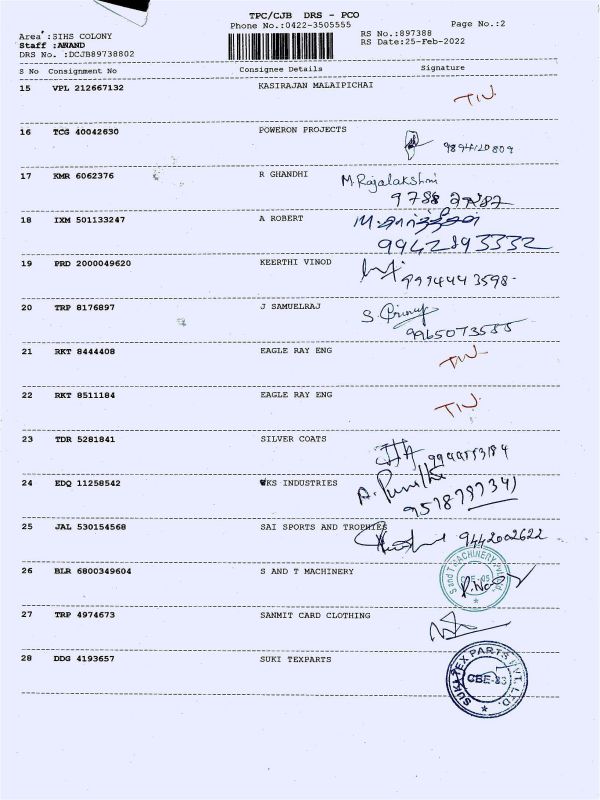 TPC/CJB DRS - PCO
Phone No.:0422-3505555
Page No.:2
Area :SIHS COLONY
RS No.:897388
Staff :ANAND
RS Date:25-Feb-2022
DRS No. :DCJB89738802
S No Consignment No Consignee Details Signature
15 VPL 212667132 KASIRAJAN MALAIPICHAI
16 TCG 40042630 POWERON PROJECTS
9894120809
17 KMR 6062376 R GHANDHI M. Rajalakshmi
18 IXM 501133247 A ROBERT
9942893332
19 PRD 2000049620 KEERTHI VINOD
9994443598
20 TRP 8176897 J SAMUELRAJ
21 RKT 8444408 EAGLE RAY ENG
22 RKT 8511184 EAGLE RAY ENG
23 TDR 5281841 SILVER COATS
24 EDQ 11258542 VKS INDUSTRIES
25 JAL 530154568 SAI SPORTS AND TROPHIES
9442002622
26 BLR 6800349604 S AND T MACHINERY
S and T MACHINERY
27 TRP 4974673 SANMIT CARD CLOTHING
28 DDG 4193657 SUKI TEXPARTS
SUKI TEX PARTS PVT. LTD.